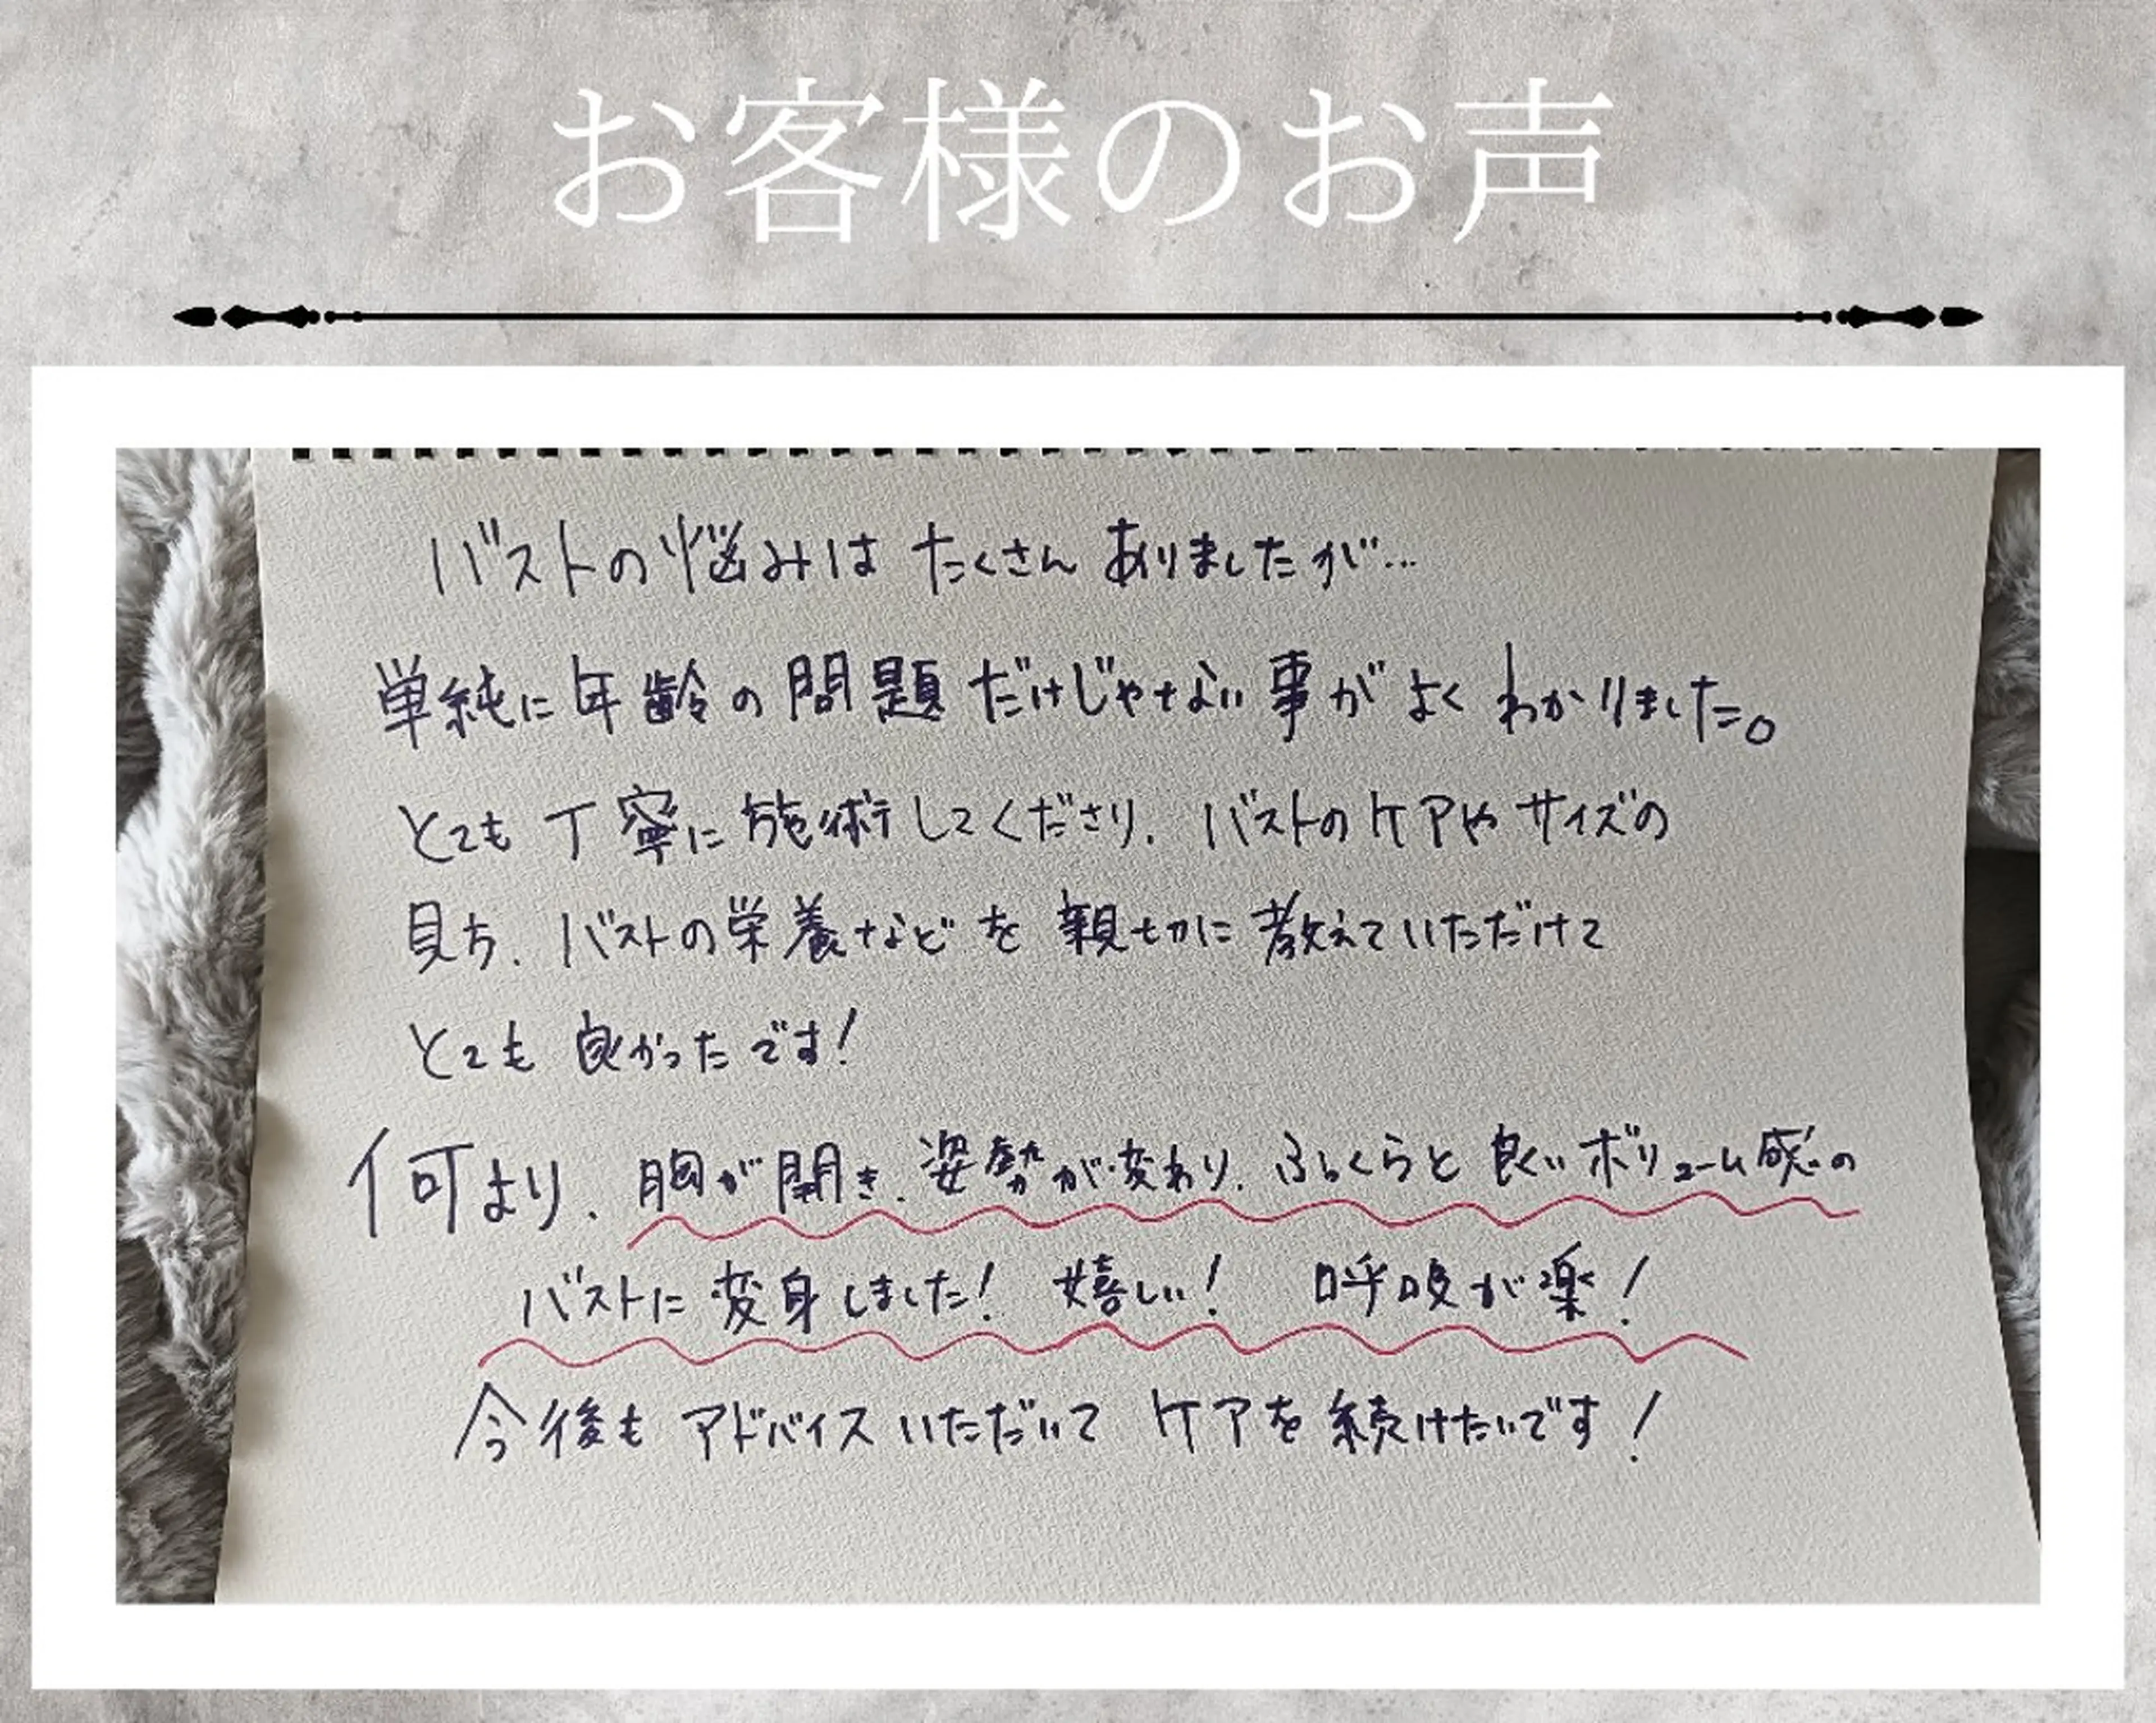 お客様のお声
バストの悩みは たくさん ありましたが…
単純に年齢の問題だけじゃない事が よく わかりました。
とても 丁寧に施術してくださり、バストのケアや サイズの
見方、バストの栄養などを 親切に教えていただけて
とても 良かったです！
何より、胸が開き、姿勢が変わり、ふっくらと 良いボリューム感の
バストに変身しました！ 嬉しい！ 呼吸が楽！
今後も アドバイスいただいて ケアを続けたいです！